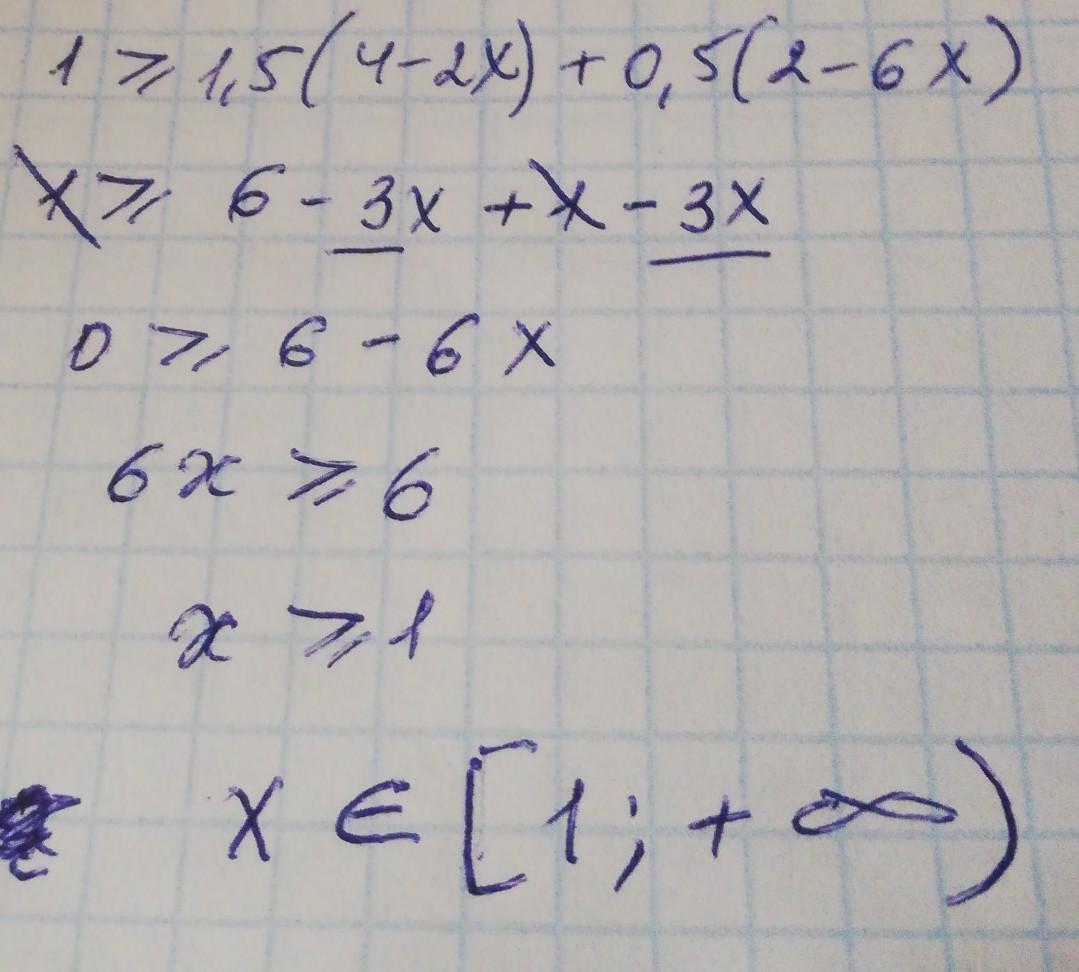 1 ⩾ 1,5(4-2x) + 0,5(2-6x)
1 ⩾ 6 - 3x + 1 - 3x
0 ⩾ 6 - 6x
6x ⩾ 6
x ⩾ 1
x ∈ [1; +∞)